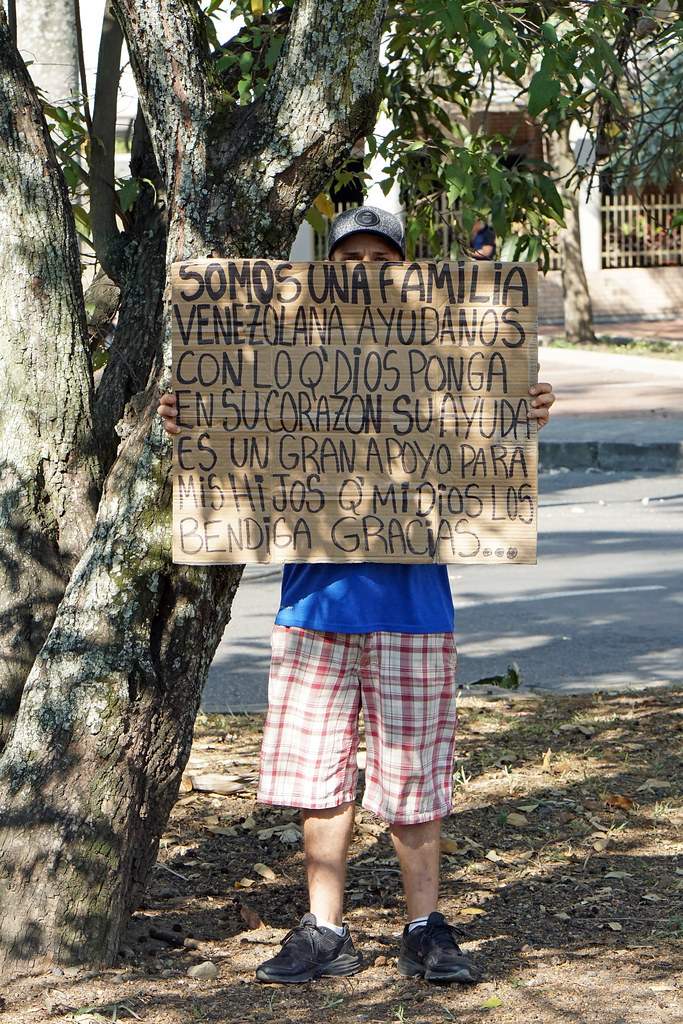 SOMOS UNA FAMILIA
VENEZOLANA AYUDANOS
CON LO Q' DIOS PONGA
EN SU CORAZON SU AYUDA
ES UN GRAN APOYO PARA
MIS HIJOS Q' MI DIOS LOS
BENDIGA GRACIAS...